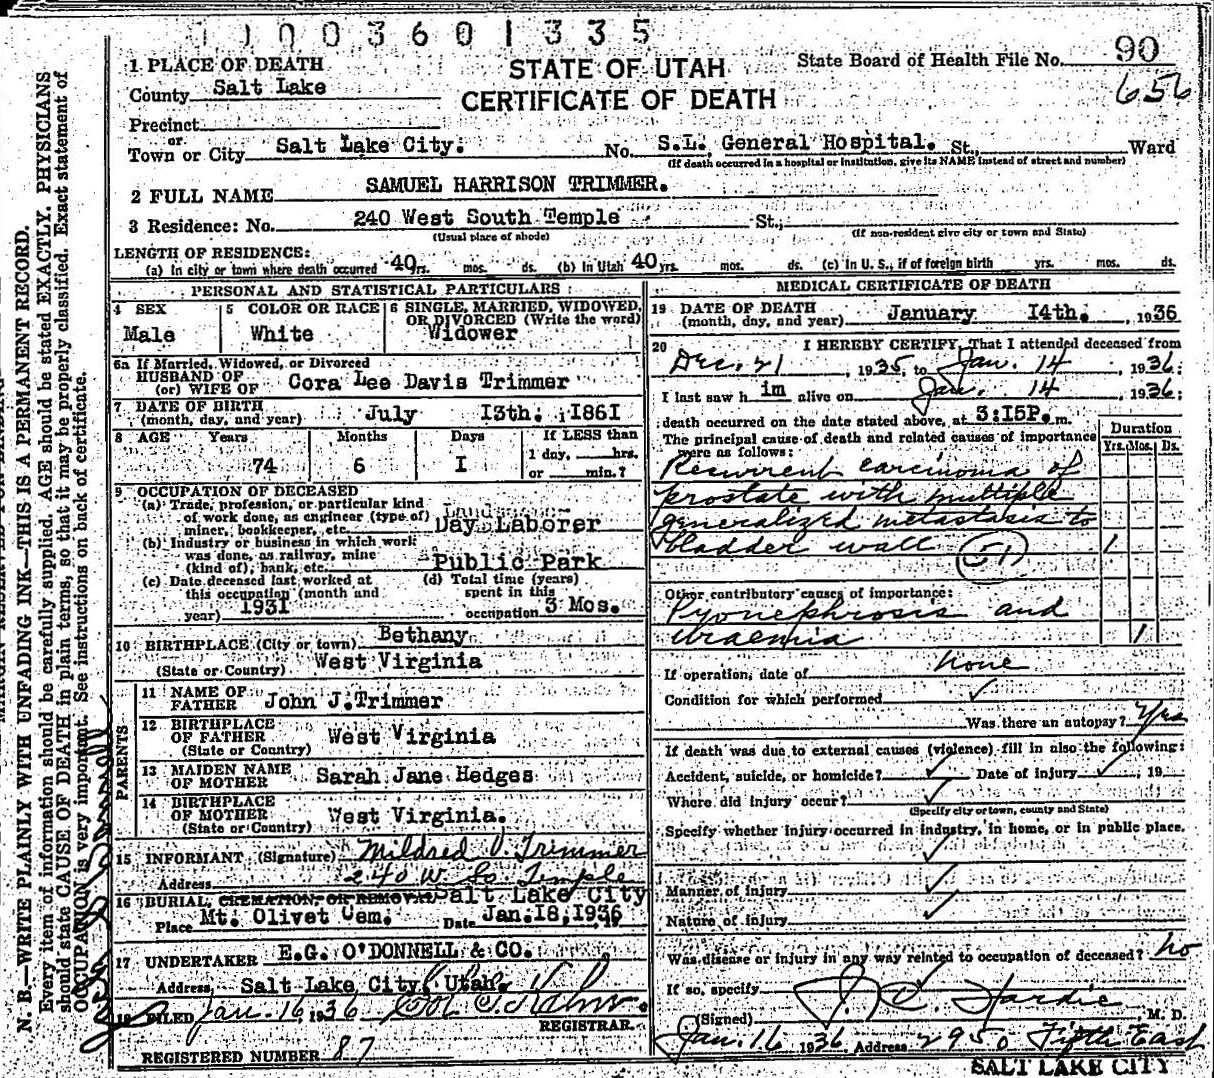 0003601335
State Board of Health File No. 90
656
STATE OF UTAH
CERTIFICATE OF DEATH
1 PLACE OF DEATH
County Salt Lake
Precinct
or
Town or City Salt Lake City. No. S.L. General Hospital. St., Ward
(If death occurred in a hospital or institution, give its NAME instead of street and number)
2 FULL NAME SAMUEL HARRISON TRIMMER.
3 Residence: No. 240 West South Temple St.,
(Usual place of abode) (If non-resident give city or town and State)
LENGTH OF RESIDENCE:
(a) In city or town where death occurred 40 yrs. mos. ds. (b) In Utah 40 yrs. mos. ds. (c) in U. S., if of foreign birth yrs. mos. ds.
PERSONAL AND STATISTICAL PARTICULARS
4 SEX
Male
5 COLOR OR RACE
White
6 SINGLE, MARRIED, WIDOWED,
OR DIVORCED (Write the word)
Widower
6a If Married, Widowed, or Divorced
HUSBAND OF
(or) WIFE OF Cora Lee Davis Trimmer
7 DATE OF BIRTH
(month, day, and year) July 13th. 1861
8 AGE Years Months Days If LESS than
1 day, hrs.
74 6 1 or min.?
9 OCCUPATION OF DECEASED
(a) Trade, profession, or particular kind
of work done, as engineer (type of)
miner, bookkeeper, etc. Day Laborer
(b) Industry or business in which work
was done, as railway, mine
(kind of), bank, etc. Public Park
(c) Date deceased last worked at
this occupation (month and
year) 1931
(d) Total time (years)
spent in this
occupation 3 Mos.
10 BIRTHPLACE (City or town) Bethany
(State or Country) West Virginia
PARENTS
11 NAME OF
FATHER John J. Trimmer
12 BIRTHPLACE
OF FATHER West Virginia
(State or Country)
13 MAIDEN NAME
OF MOTHER Sarah Jane Hedges
14 BIRTHPLACE
OF MOTHER West Virginia.
(State or Country)
15 INFORMANT (Signature) Mildred V. Trimmer
Address 240 W So. Temple
16 BURIAL, CREMATION, OR REMOVAL Salt Lake City
Place Mt. Olivet Cem. Date Jan. 18, 1936
17 UNDERTAKER E.G. O'DONNELL & CO.
Address Salt Lake City, Utah.
18 FILED Jan. 16, 1936
REGISTRAR.
REGISTERED NUMBER 87
MEDICAL CERTIFICATE OF DEATH
19 DATE OF DEATH
(month, day, and year) January 14th. , 1936
20 I HEREBY CERTIFY, That I attended deceased from
Dec. 21 , 1935, to Jan. 14 , 1936;
I last saw him alive on Jan. 14 , 1936;
death occurred on the date stated above, at 3:15P. m.
The principal cause of death and related causes of importance
were as follows:
Duration
Yrs. Mos. Ds.
Recurrent carcinoma of
prostate with multiple
generalized metastasis to
bladder wall (51) 1
Other contributory causes of importance:
Pyonephrosis and
uraemia 1
If operation, date of none
Condition for which performed ✓
Was there an autopsy? Yes
If death was due to external causes (violence) fill in also the following:
Accident, suicide, or homicide? ✓ Date of injury ✓, 19
Where did injury occur? ✓
(Specify city or town, county and State)
Specify whether injury occurred in industry, in home, or in public place.
✓
Manner of injury ✓
Nature of injury ✓
Was disease or injury in any way related to occupation of deceased? no
If so, specify ✓
(Signed) J. C. Hardie M. D.
Jan. 16 1936 Address 2950 Fifth East
SALT LAKE CITY
N. B.—WRITE PLAINLY WITH UNFADING INK—THIS IS A PERMANENT RECORD.
Every item of information should be carefully supplied. AGE should be stated EXACTLY. PHYSICIANS
should state CAUSE OF DEATH in plain terms, so that it may be properly classified. Exact statement of
OCCUPATION is very important. See instructions on back of certificate.